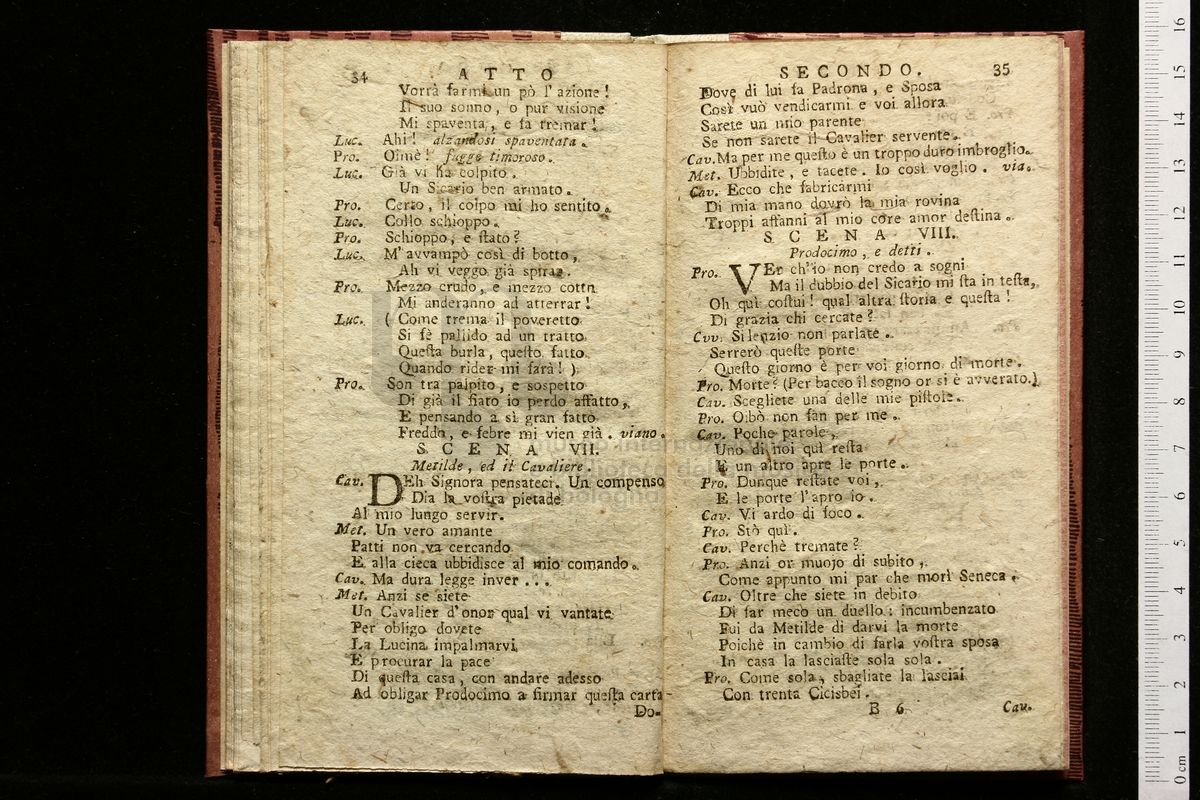 34 ATTO
Vorrà farmi un pò l'azione!
Il suo sonno, o pur visione
Mi spaventa, e fa tremar!
Luc. Ahi! alzandosi spaventata.
Pro. Oimè! fugge timoroso.
Luc. Già vi ha colpito.
Un Sicario ben armato.
Pro. Certo, il colpo mi ho sentito.
Luc. Collo schioppo.
Pro. Schioppo, e stato?
Luc. M'avvampò così di botto,
Ah vi veggo già spirar.
Pro. Mezzo crudo, e mezzo cotto
Mi anderanno ad atterrar!
Luc. ( Come trema il poveretto
Si fè pallido ad un tratto
Questa burla, questo fatto
Quando rider mi farà! )
Pro. Son tra palpito, e sospetto
Di già il fiato io perdo affatto,
E pensando a sì gran fatto
Freddo, e febre mi vien già. viano.
SCENA VII.
Metilde, ed il Cavaliere.
Cav. DEh Signora pensateci. Un compenso
Dia la vostra pietade
Al mio lungo servir.
Met. Un vero amante
Patti non va cercando
E alla cieca ubbidisce al mio comando.
Cav. Ma dura legge inver ...
Met. Anzi se siete
Un Cavalier d'onor qual vi vantate
Per obligo dovete
La Lucina impalmarvi,
E procurar la pace
Di questa casa, con andare adesso
Ad obligar Prodocimo a firmar questa carta
Do-
SECONDO. 35
Dove di lui fa Padrona, e Sposa
Così vuò vendicarmi e voi allora
Sarete un mio parente
Se non sarete il Cavalier servente.
Cav. Ma per me questo è un troppo duro imbroglio.
Met. Ubbidite, e tacete. Io così voglio. via.
Cav. Ecco che fabricarmi
Di mia mano dovrò la mia rovina
Troppi affanni al mio core amor destina.
SCENA VIII.
Prodocimo, e detti.
Pro. VEr ch'io non credo a sogni
Ma il dubbio del Sicario mi sta in testa,
Oh quì costui! qual altra storia e questa!
Di grazia chi cercate?
Cvv. Silenzio non parlate.
Serrerò queste porte
Questo giorno è per voi giorno di morte.
Pro. Morte? (Per bacco il sogno or si è avverato.)
Cav. Scegliete una delle mie pistole.
Pro. Oibò non fan per me.
Cav. Poche parole,
Uno di noi quì resta
E un altro apre le porte.
Pro. Dunque restate voi,
E le porte l'apro io.
Cav. Vi ardo di foco.
Pro. Stò quì.
Cav. Perchè tremate?
Pro. Anzi or muojo di subito,
Come appunto mi par che morì Seneca.
Cav. Oltre che siete in debito
Di far meco un duello: incumbenzato
Fui da Metilde di darvi la morte
Poichè in cambio di farla vostra sposa
In casa la lasciaste sola sola.
Pro. Come sola, sbagliate la lasciai
Con trenta Cicisbei.
B 6 Cav.